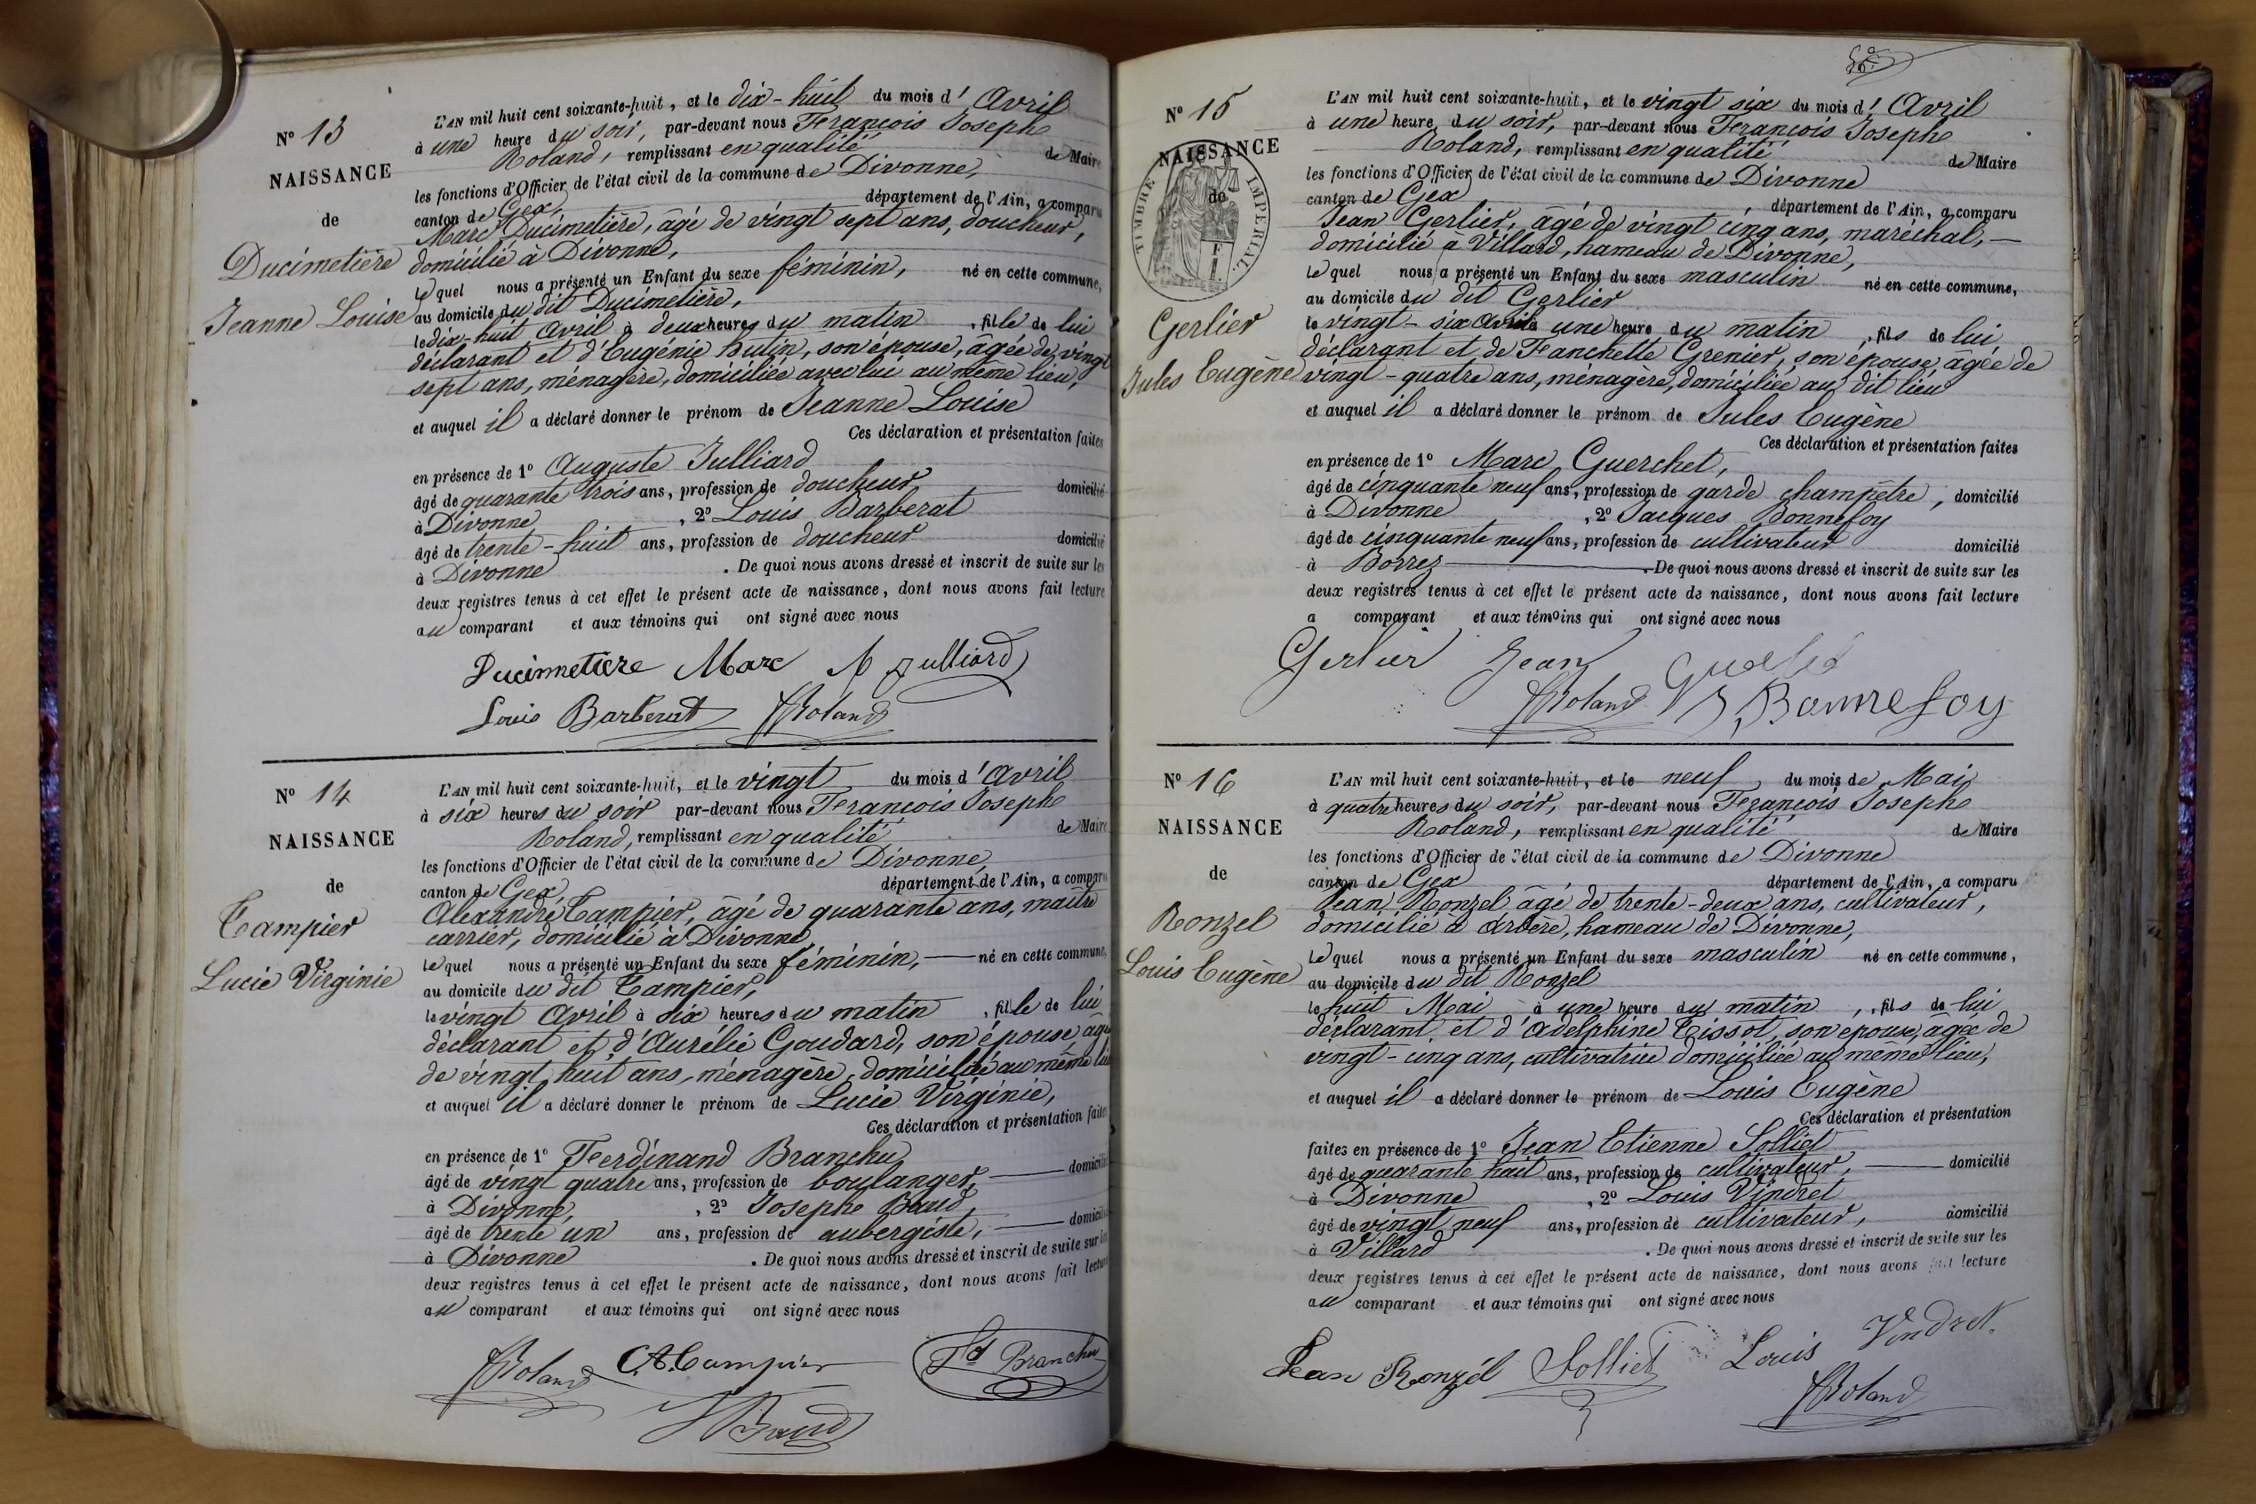 N° 13
NAISSANCE
de
Ducimetière
Jeanne Louise
L'AN mil huit cent soixante-huit, et le dix-huit du mois d'Avril
à une heure du soir, par-devant nous François Joseph
Roland, remplissant en qualité de Maire
les fonctions d'Officier de l'état civil de la commune de Divonne,
canton de Gex, département de l'Ain, a comparu
Marc Ducimetière, âgé de vingt sept ans, doucheur,
domicilié à Divonne,
Lequel nous a présenté un Enfant du sexe féminin, né en cette commune,
au domicile du dit Ducimetière,
le dix-huit Avril à deux heures du matin, fille de lui
déclarant et d'Eugénie Hutin, son épouse, âgée de vingt
sept ans, ménagère, domiciliée avec lui au même lieu,
et auquel il a déclaré donner le prénom de Jeanne Louise
Ces déclaration et présentation faites
en présence de 1° Auguste Julliard
âgé de quarante trois ans, profession de doucheur domicilié
à Divonne, 2° Louis Barberat
âgé de trente-huit ans, profession de doucheur domicilié
à Divonne. De quoi nous avons dressé et inscrit de suite sur les
deux registres tenus à cet effet le présent acte de naissance, dont nous avons fait lecture
au comparant et aux témoins qui ont signé avec nous
Ducimetiere Marc A Julliard
Louis Barberat FRoland
N° 14
NAISSANCE
de
Tampier
Lucie Virginie
L'AN mil huit cent soixante-huit, et le vingt du mois d'Avril
à six heures du soir par-devant nous François Joseph
Roland, remplissant en qualité de Maire
les fonctions d'Officier de l'état civil de la commune de Divonne,
canton de Gex, département de l'Ain, a comparu
Alexandre Tampier, âgé de quarante ans, maître
carrier, domicilié à Divonne
Lequel nous a présenté un Enfant du sexe féminin, — né en cette commune,
au domicile du dit Tampier,
le vingt Avril à six heures du matin, fille de lui
déclarant et d'Aurélie Goudard, son épouse, âgée
de vingt huit ans, ménagère, domiciliée au même lieu
et auquel il a déclaré donner le prénom de Lucie Virginie,
Ces déclaration et présentation faites
en présence de 1° Ferdinand Branchu
âgé de vingt quatre ans, profession de boulanger, — domicilié
à Divonne, 2° Joseph Baud,
âgé de trente un ans, profession de aubergiste, — domicilié
à Divonne. De quoi nous avons dressé et inscrit de suite sur les
deux registres tenus à cet effet le présent acte de naissance, dont nous avons fait lecture
au comparant et aux témoins qui ont signé avec nous
FRoland C.A. Tampier Fd Branchu
J Baud
N° 15
NAISSANCE
de
TIMBRE IMPÉRIAL.
Gerlier
Jules Eugène
L'AN mil huit cent soixante-huit, et le vingt six du mois d'Avril
à une heure du soir, par-devant nous François Joseph
Roland, remplissant en qualité de Maire
les fonctions d'Officier de l'état civil de la commune de Divonne
canton de Gex département de l'Ain, a comparu
Jean Gerlier, âgé de vingt cinq ans, maréchal, —
domicilié à Villard, hameau de Divonne,
Lequel nous a présenté un Enfant du sexe masculin né en cette commune,
au domicile du dit Gerlier
le vingt-six Avril à une heure du matin, fils de lui
déclarant et de Franchette Grenier, son épouse, âgée de
vingt-quatre ans, ménagère, domiciliée au dit lieu
et auquel il a déclaré donner le prénom de Jules Eugène
Ces déclaration et présentation faites
en présence de 1° Marc Guerchet,
âgé de cinquante neuf ans, profession de garde champêtre, domicilié
à Divonne, 2° Jacques Bonnefoy
âgé de cinquante neuf ans, profession de cultivateur domicilié
à Borrez —. De quoi nous avons dressé et inscrit de suite sur les
deux registres tenus à cet effet le présent acte de naissance, dont nous avons fait lecture
a comparant et aux témoins qui ont signé avec nous
Gerlier Jean
FRoland J. Bonnefoy
N° 16
NAISSANCE
de
Ronzel
Louis Eugène
L'AN mil huit cent soixante-huit, et le neuf du mois de Mai
à quatre heures du soir, par-devant nous François Joseph
Roland, remplissant en qualité de Maire
les fonctions d'Officier de l'état civil de la commune de Divonne
canton de Gex département de l'Ain, a comparu
Jean Ronzel âgé de trente-deux ans, cultivateur,
domicilié à Arbère, hameau de Divonne,
Lequel nous a présenté un Enfant du sexe masculin né en cette commune,
au domicile du dit Ronzel
le huit Mai à une heure du matin, fils de lui
déclarant et d'Adelphine Tissot, son épouse, âgée de
vingt-cinq ans, cultivatrice domiciliée au même lieu,
et auquel il a déclaré donner le prénom de Louis Eugène
Ces déclaration et présentation
faites en présence de 1° Jean Etienne Solliet
âgé de quarante huit ans, profession de cultivateur, — domicilié
à Divonne, 2° Louis Vindret
âgé de vingt neuf ans, profession de cultivateur, domicilié
à Villard. De quoi nous avons dressé et inscrit de suite sur les
deux registres tenus à cet effet le présent acte de naissance, dont nous avons fait lecture
au comparant et aux témoins qui ont signé avec nous
Jean Ronzél Solliet Louis Vindret.
FRoland